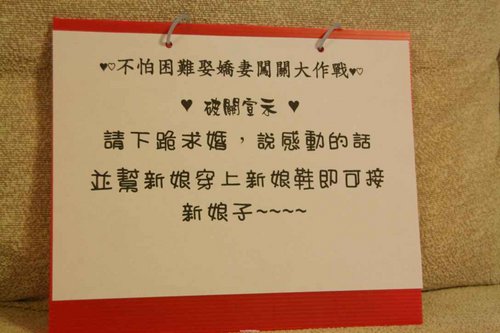 ♥♡不怕困難娶嬌妻闖關大作戰♥♡
♥ 破關宣示 ♥
請下跪求婚，說感動的話
並幫新娘穿上新娘鞋即可接
新娘子~~~~